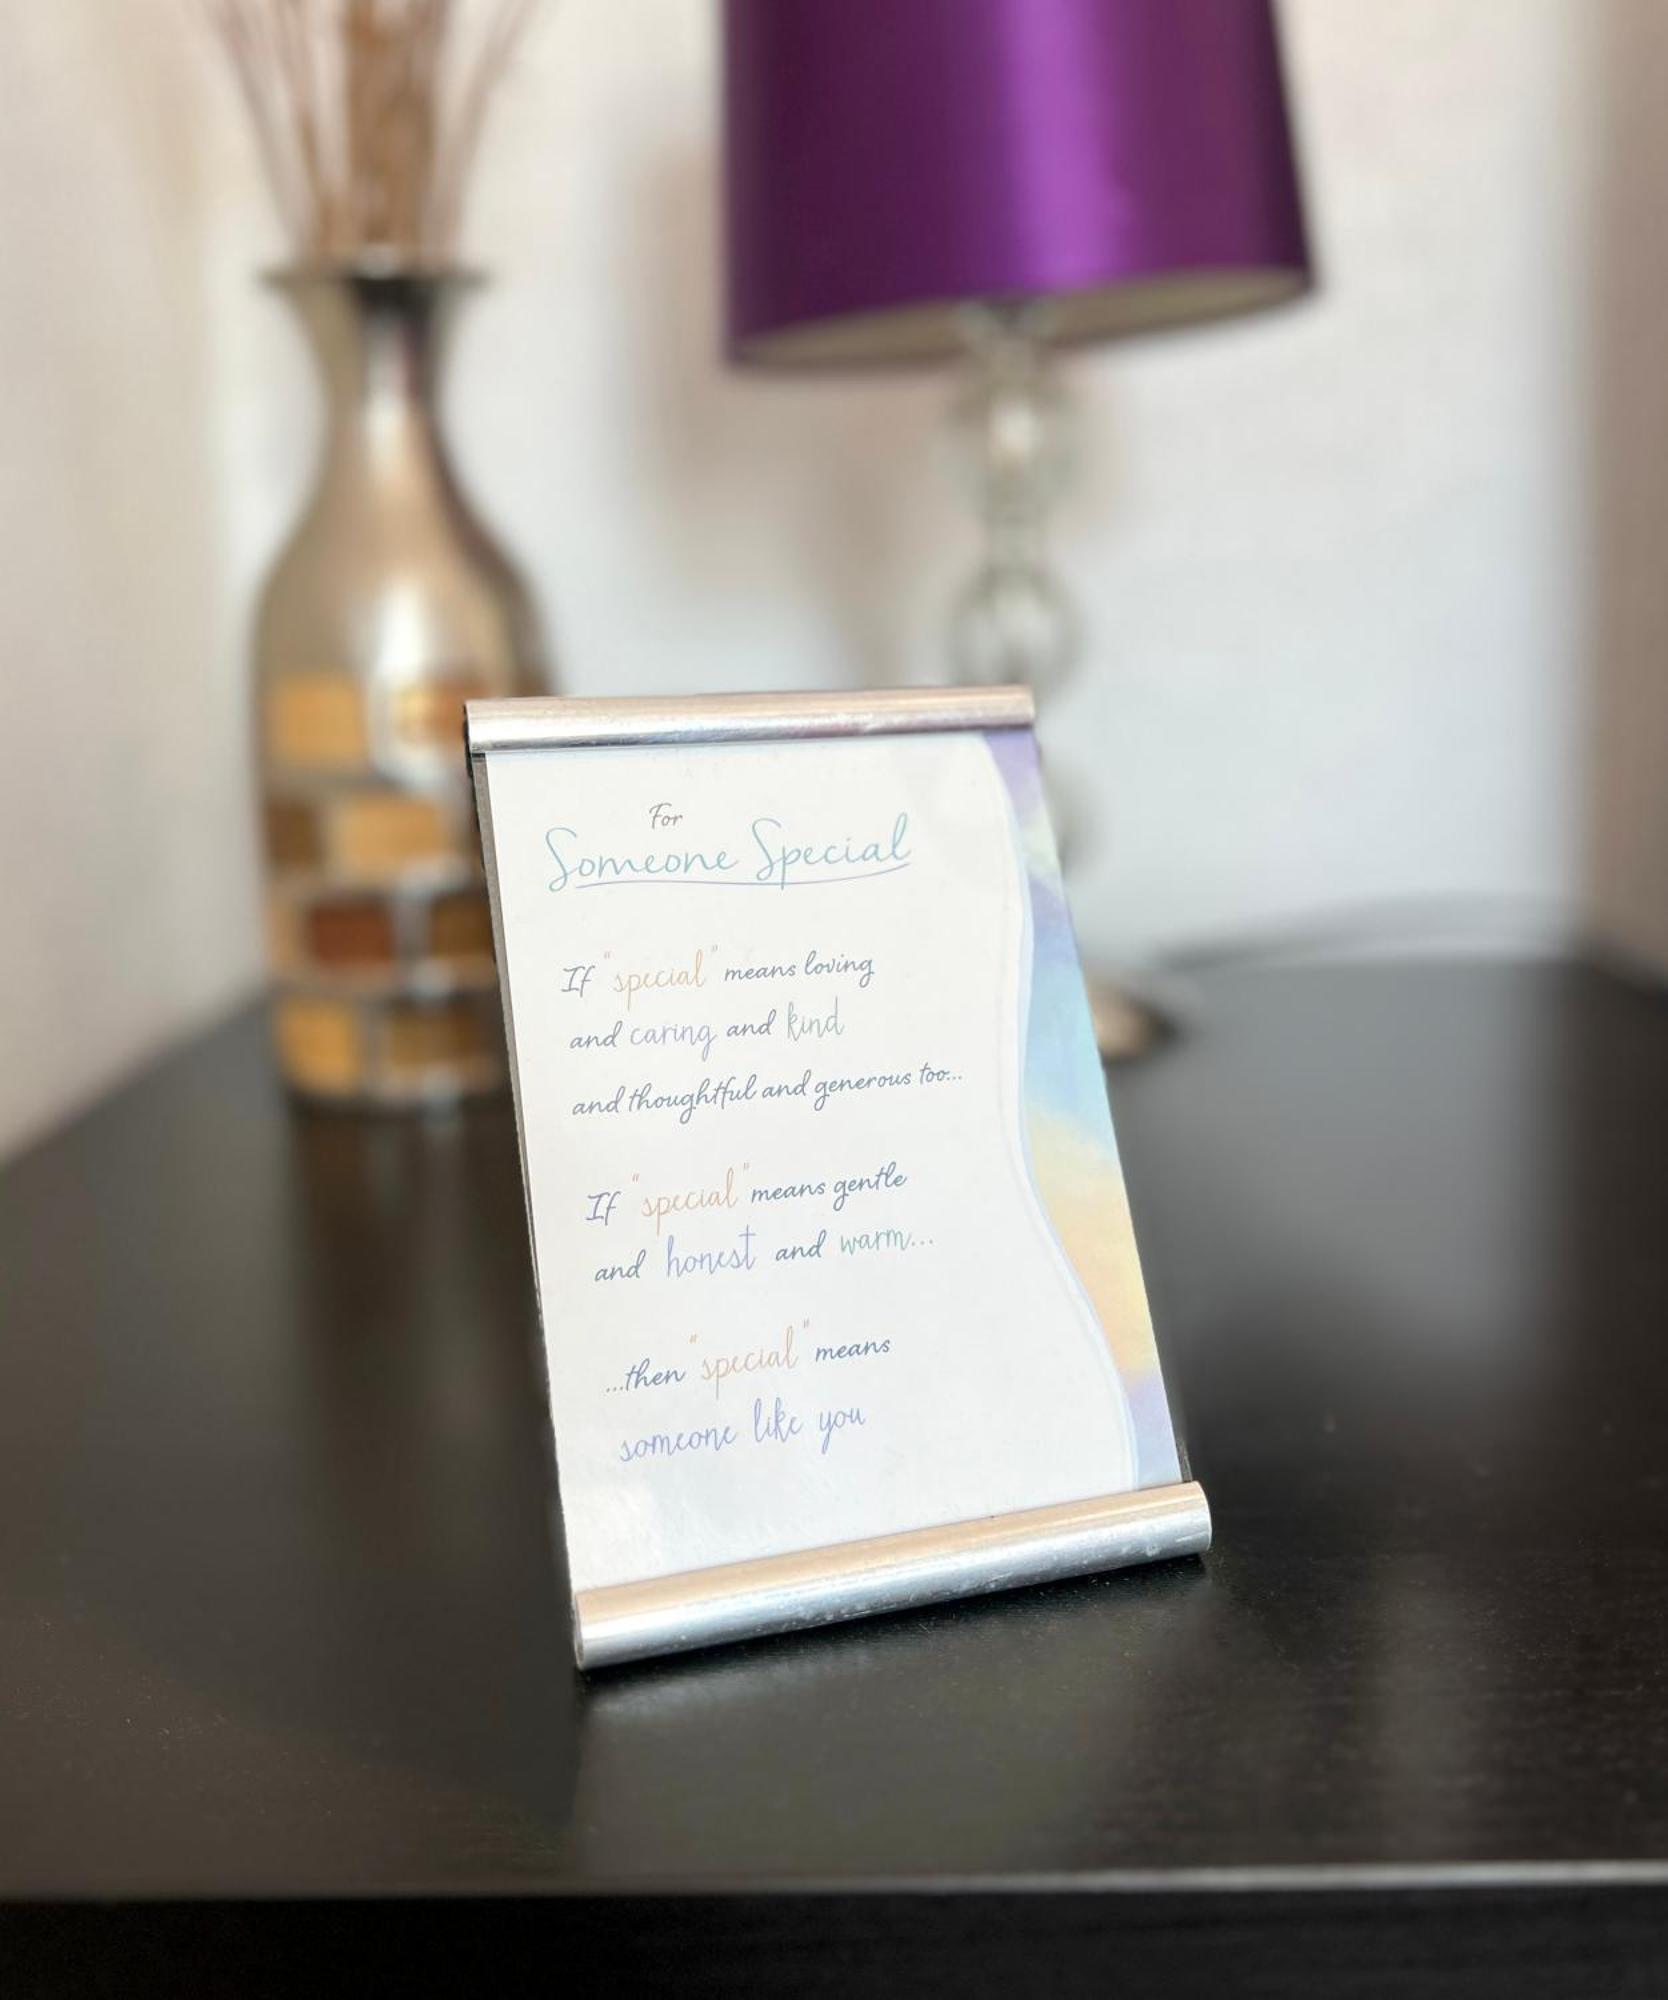 For
Someone Special
If "special" means loving
and caring and kind
and thoughtful and generous too...
If "special" means gentle
and honest and warm...
...then "special" means
someone like you